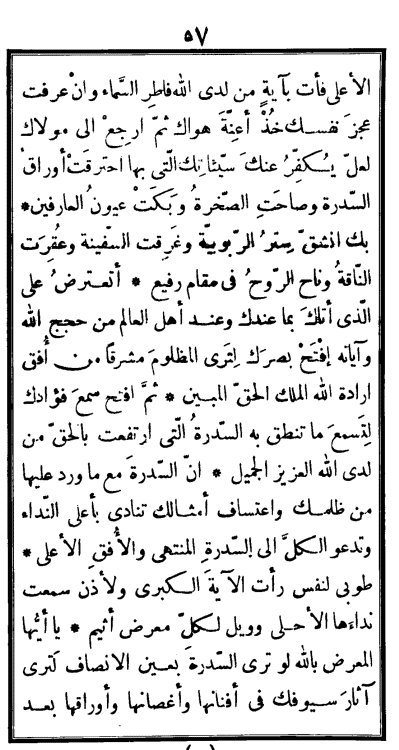 ٥٧
الأعلى فأت بآية من لدى الله فاطر السَّماء وانْ عرفت
عجزَ نفسك خُذْ أعِنّةَ هواك ثمّ ارجعْ الى مولاك
لعلّ يُكفِّرُ عنكَ سيّئاتك الّتى بها احترقَتْ أوراقُ
السّدرة وصاحَتِ الصّخرةُ وبَكَتْ عيونُ العارفين *
بك انشقّ سِترُ الرّبوبيّة وغَرِقت السّفينة وعُقِرَت
النّاقةُ وناح الرّوحُ فى مقام رفيع * أتعترضُ على
الّذى أتاكَ بما عندك وعند أهل العالم من حجج الله
وآياته إفْتَحْ بصرَك لِتَرى المظلومَ مشرقًا من أُفق
ارادة الله الملك الحقّ المبين * ثمَّ افتح سمعَ فؤادك
لِتَسمعَ ما تنطق به السّدرةُ الّتى ارتفعت بالحقّ من
لدى الله العزيز الجميل * انّ السّدرةَ مع ما ورد عليها
من ظلمك واعتساف أمثالك تنادى بأعلى النّداء
وتدعو الكلَّ الى السّدرةِ المنتهى والأُفقِ الأعلى *
طوبى لنفس رأت الآيةَ الكبرى ولأذن سمعت
نداءَها الأحلى وويل لكلّ معرض أثيم * ياأيُّها
المعرض بالله لو ترى السّدرةَ بعين الانصاف لَترى
آثارَ سيوفك فى أفنانها وأغصانها وأوراقها بعد